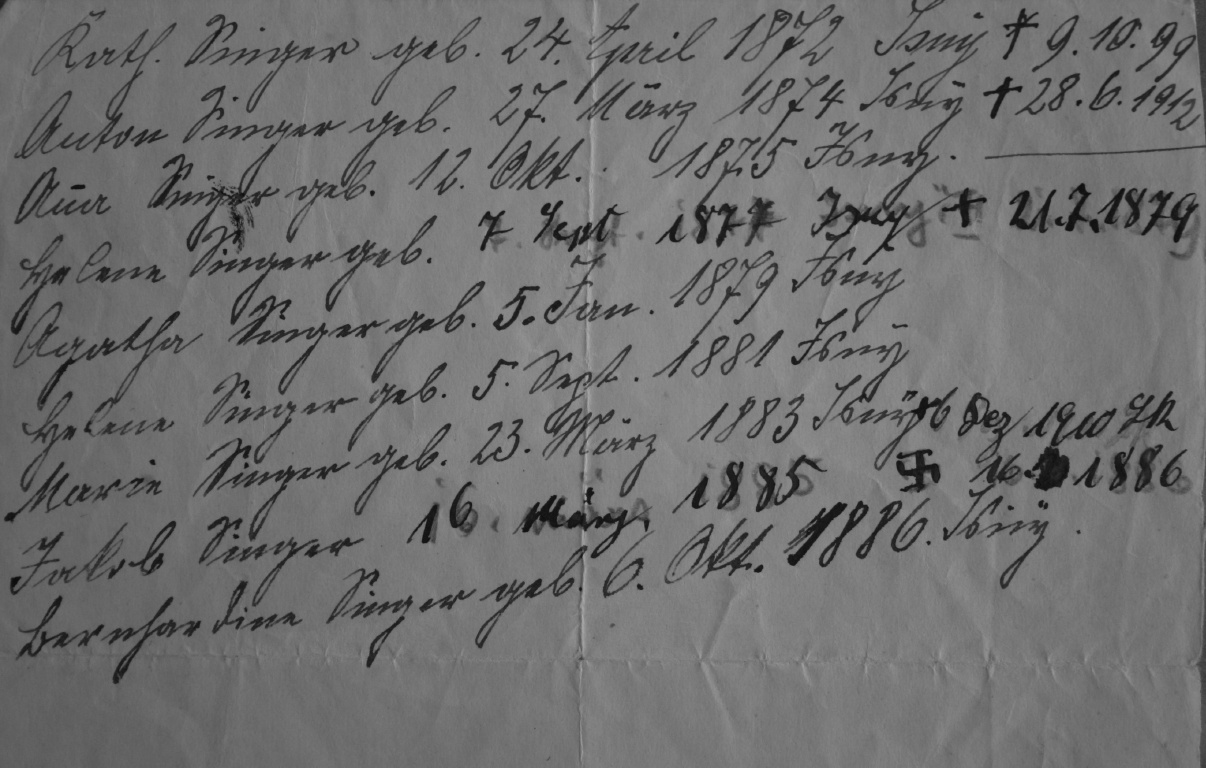 Kath. Singer geb. 24. April 1872 Isnÿ † 9.10.99
Anton Singer geb. 27. März 1874 Isnÿ † 28.6.1912
Ana Singer geb. 12. Okt. 1875 Isny.
Helene Singer geb. 7 Sept 1877 Isny † 21.7.1879
Agatha Singer geb. 5. Jan. 1879 Isnÿ
Helene Singer geb. 5. Sept. 1881 Isnÿ
Marie Singer geb. 23. März 1883 Isnÿ 6 Dez 1910
Jakob Singer 16 März 1885 16. 1886
Bernhardine Singer geb. 6. Okt. 1886. Isnÿ.